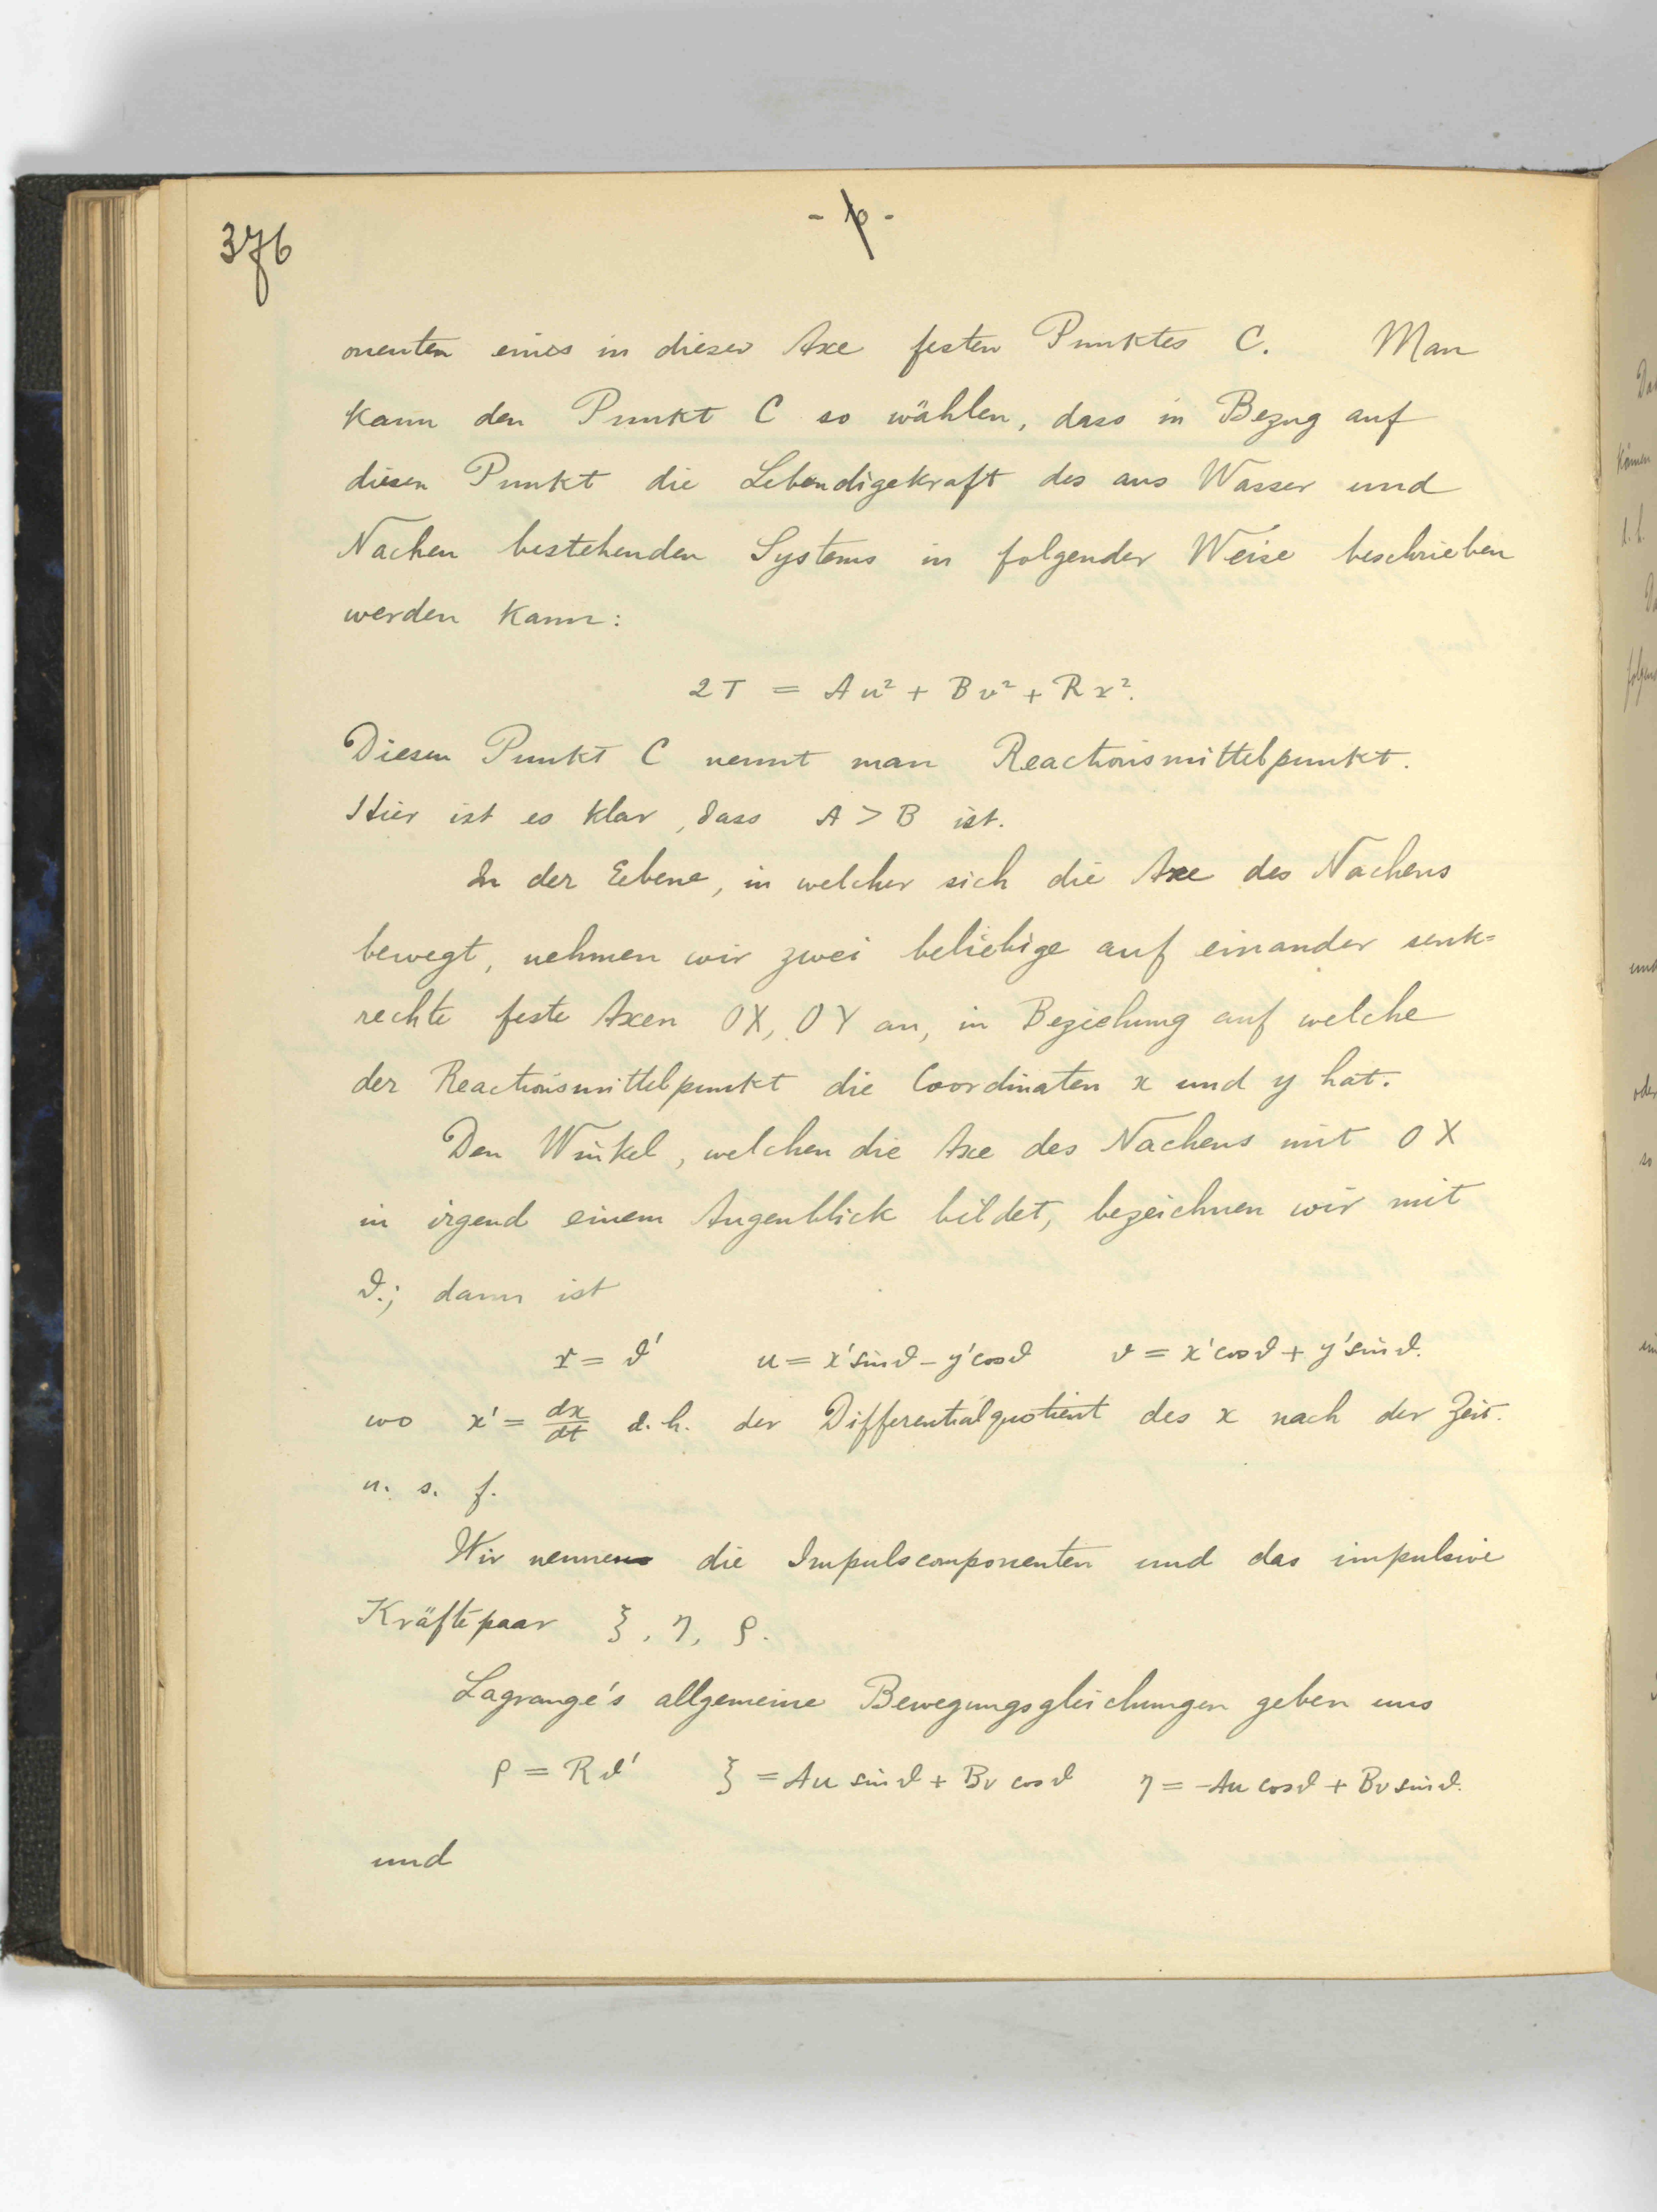 376
- 6 -
onenten eines in dieser Axe festen Punktes C. Man
kann den Punkt C so wählen, dass in Bezug auf
diesen Punkt die Lebendigekraft des aus Wasser und
Nachen bestehenden Systems in folgender Weise beschrieben
werden kann:
2T = Au² + Bv² + Rr².
Diesen Punkt C nennt man Reactionsmittelpunkt.
Hier ist es klar, dass A > B ist.
In der Eebene, in welcher sich die Axe des Nachens
bewegt, nehmen wir zwei beliebige auf einander senk=
rechte feste Axen OX, OY an, in Beziehung auf welche
der Reactionsmittelpunkt die Coordinaten x und y hat.
Den Winkel, welchen die Axe des Nachens mit OX
in irgend einem Augenblick bildet, bezeichnen wir mit
ϑ.; dann ist
r = ϑ' u = x'sinϑ - y'cosϑ v = x'cosϑ + y'sinϑ.
wo x' = dx/dt d.h. der Differentialquotient des x nach der Zeit.
u. s. f.
Wir nennen die Impulscomponenten und das impulsive
Kräftepaar ξ, η, ρ.
Lagrange's allgemeine Bewegungsgleichungen geben uns
ρ = Rϑ' ξ = Au sinϑ + Bv cosϑ η = -Au cosϑ + Bv sinϑ.
und
können
d. h.
und
oder
so